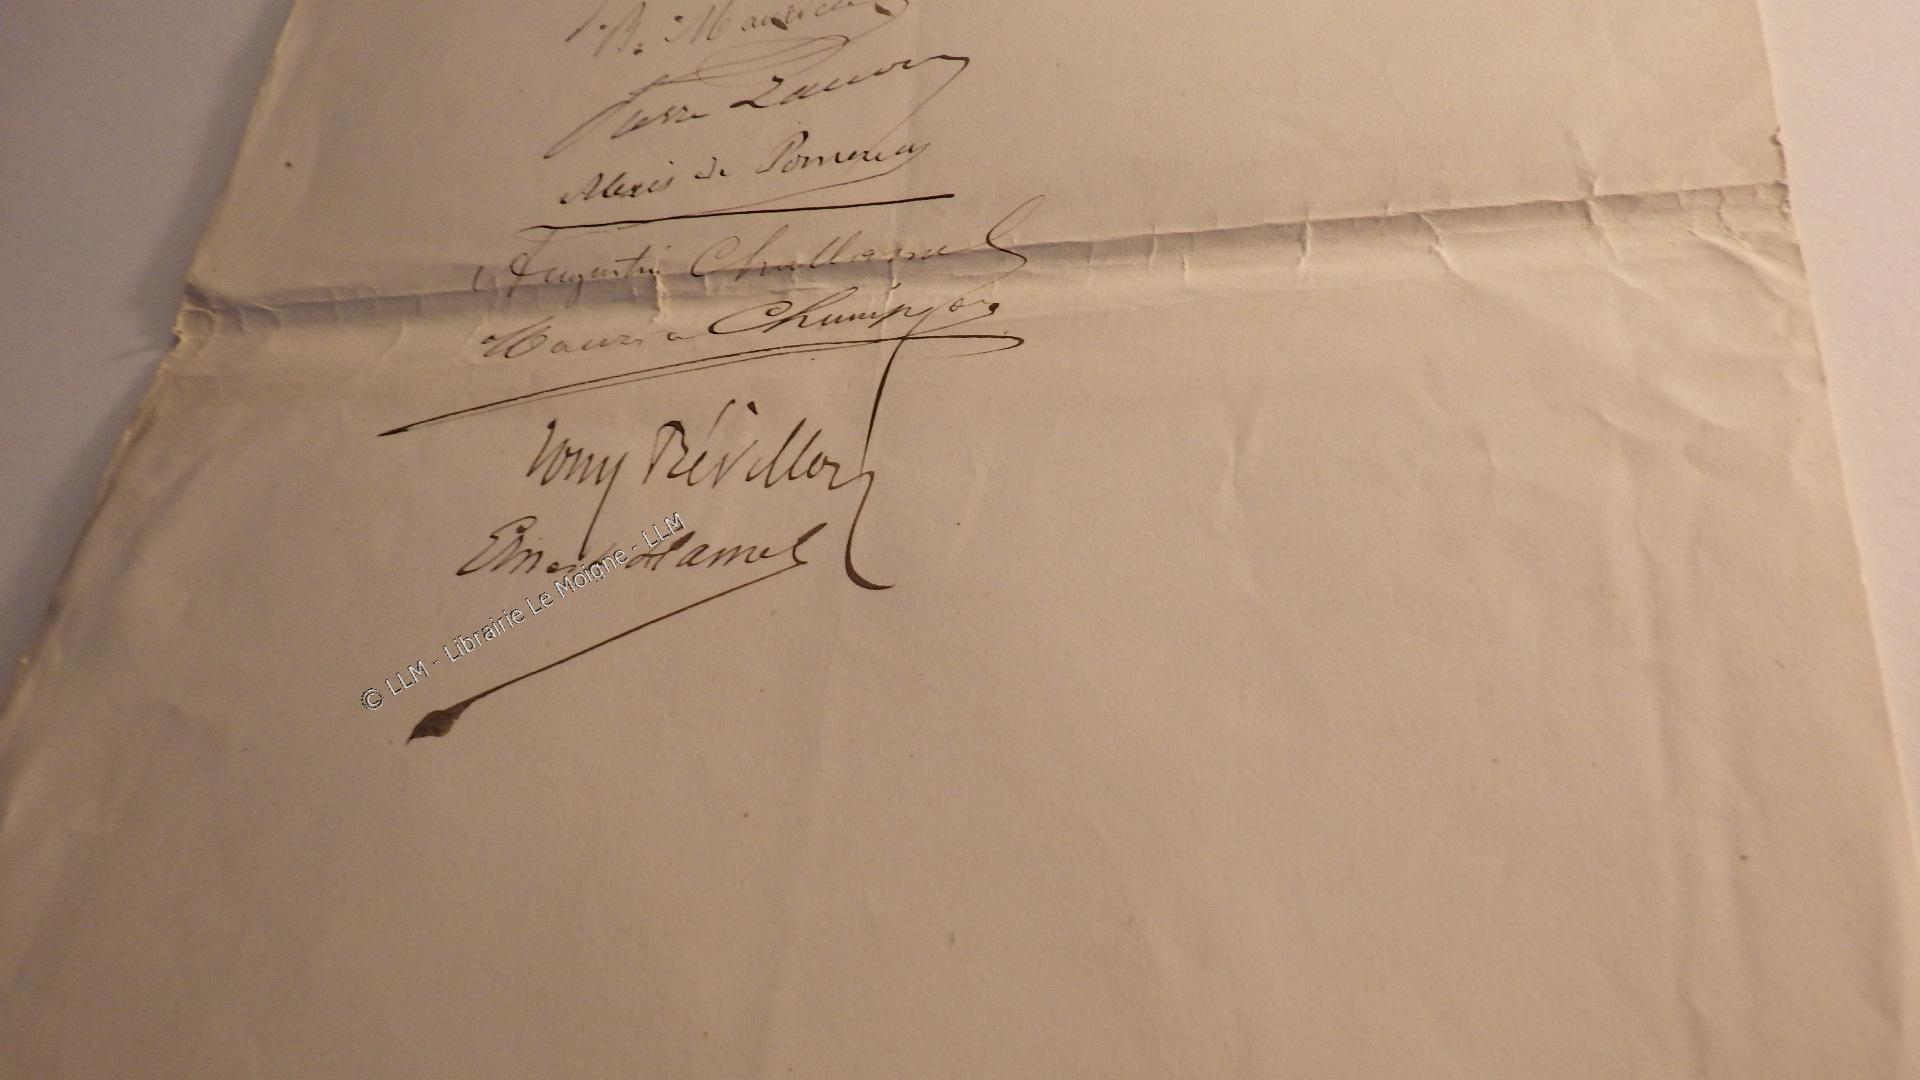 Pierre Zaccone
Alexis de Pomereu
Augustin Challamel
Maurice Champion
Tony Révillon
Ernest Hamel
© LLM - Librairie Le Moigne - LLM